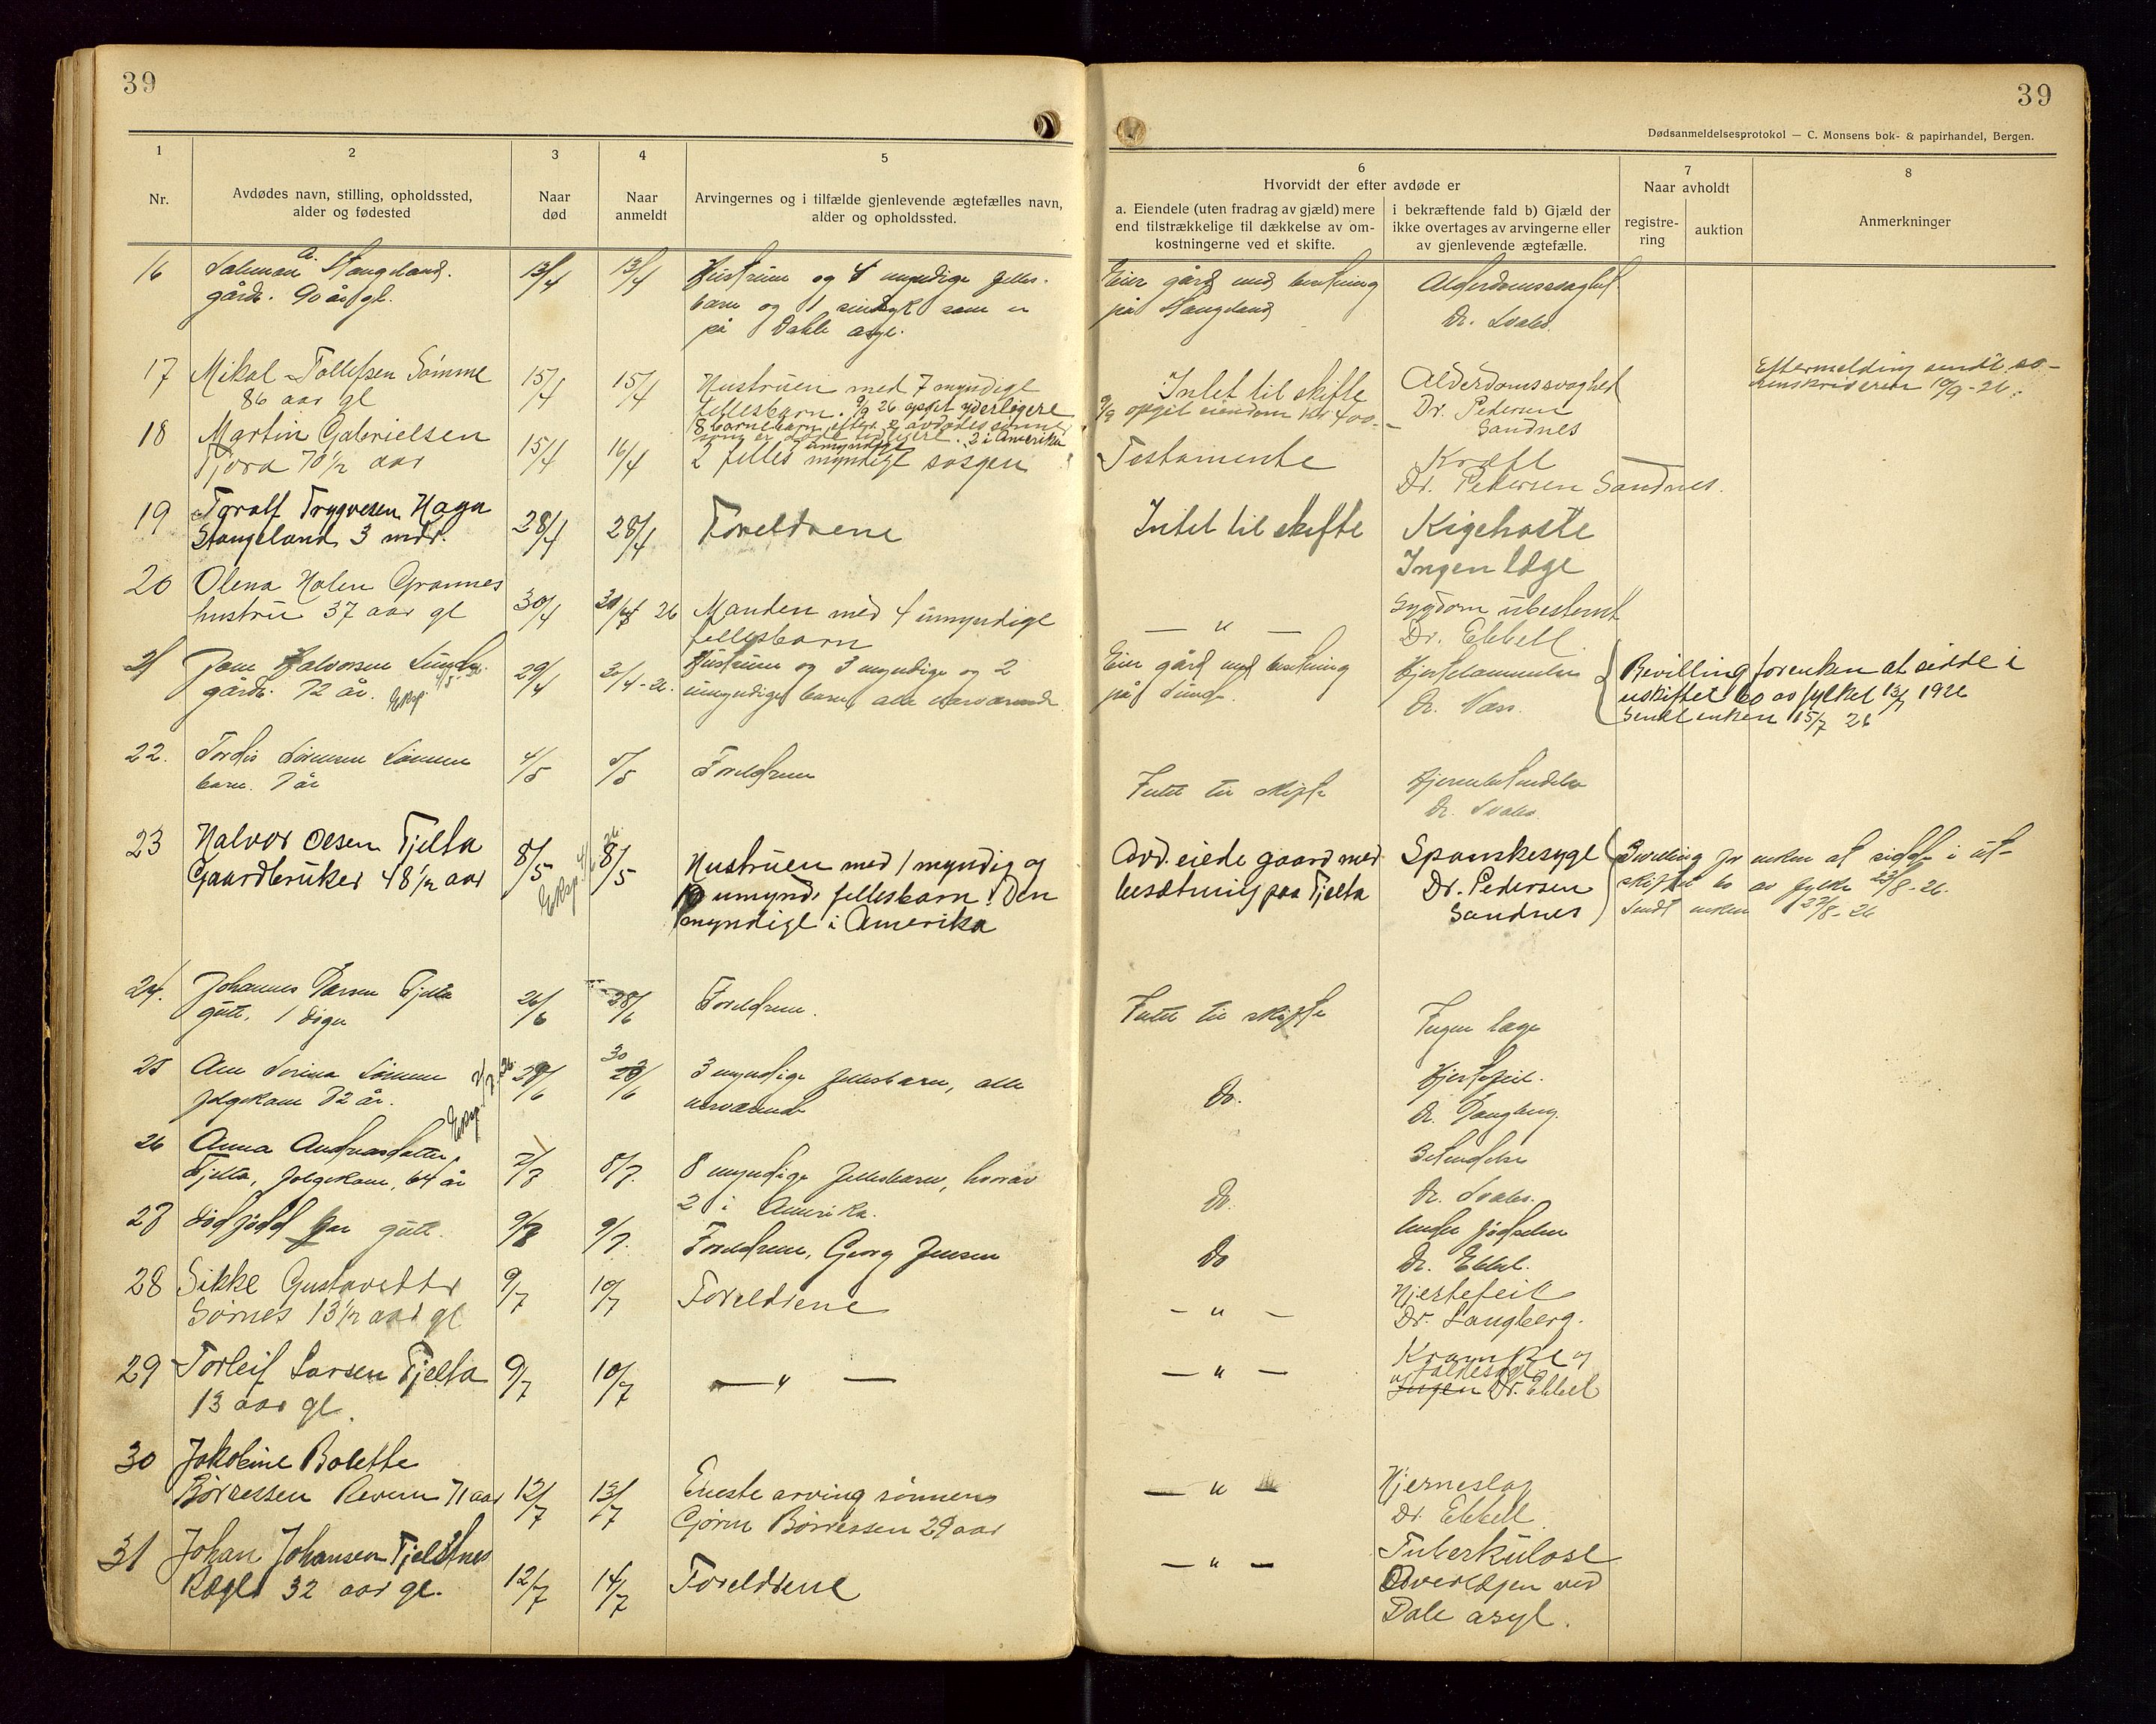 39
39
Dødsanmeldelsesprotokol — C. Monsens bok- & papirhandel, Bergen.
1
2
3
4
5
6
7
8
Nr.
Avdødes navn, stilling, opholdssted,
alder og fødested
Naar
død
Naar
anmeldt
Arvingernes og i tilfælde gjenlevende ægtefælles navn,
alder og opholdssted.
Hvorvidt der efter avdøde er
a. Eiendele (uten fradrag av gjæld) mere
end tilstrækkelige til dækkelse av om-
kostningerne ved et skifte.
i bekræftende fald b) Gjæld der
ikke overtages av arvingerne eller
av gjenlevende ægtefælle.
Naar avholdt
registre-
ring
auktion
Anmerkninger
16
Salmon A. Stangeland.
gårdb. 90 år gl.
13/4
13/4
Hustruen og 4 myndige felles-
barn og 1 sindsyk som er
på Dahle asyl.
Eier gård med besetning
på Stangeland
Alderdomssvaghet
Dr. Svabs.
17
Mikal Tollefsen Sømme
86 aar gl
15/4
15/4
Hustruen med 7 myndige
fellesbarn. 9/9 26 opgit yderligere
8 barnebarn efter 2 avdødes sønner
som er døde tidligere. 2 i Amerika
Intet til skifte
9/9 opgit eiendom kr 400.-
Alderdomssvaghed
Dr. Pedersen
Sandnes
Eftermelding sendt so-
renskriveren 10/9-26.
18
Martin Gabrielsen
Tjora 70 1/2 aar
15/4
16/4
2 felles myndige
Testamente
Kræft
Dr. Pedersen Sandnes.
19
Toralf Trygvesen Haga
Stangeland 3 mdr.
28/4
28/4
Foreldrene
Intet til skifte
Kigehoste
Ingen læge
20
Olena Halen Grannes
hustru 37 aar gl
30/4
30/4 26
Manden med 4 umyndige
fellesbarn
— " —
Sygdom ubestemt
Dr. Ebbell.
21
Jone Halvorsen
gårdb. 72 år. Eksp.
29/4
30/4-26.
Hustruen og 3 myndige og 2
umyndige barn, alle nærværende
Eier gård med besetning
på
Hjertelammelse
Dr. Næss.
Bevilling for enken at sidde i
uskiftet bo av fylket 13/7 1926
Sendt enken 15/7 26
22.
Tordis Sørensen Sømme
barn. 7 år
4/5
5/5
Foreldrene
Intet til skifte
Hjernebetendelse
Dr. Svabs.
23
Halvor Olsen Tjelta
Gaardbruker 48 1/2 aar
8/5
Eksp.
8/5
Hustruen med 1 myndig og
10 umynd. fellesbarn. Den
myndige i Amerika
Avd. eiede gaard med
besætning paa Tjelta
Spanskesyge
Dr. Pedersen
Sandnes
Bevilling for enken at sidde i u-
skiftet bo av fylke 23/8-26.
Sendt enken 27/8-26
24.
Johannes Larsen Tjelta
gutt, 1 døgn
26/6
28/6
Foreldrene.
Intet til skifte
Ingen læge
25
Ane Serina Sømme
folgekone 82 år.
Eksp.
29/6
30/6
3 myndige fellesbarn, alle
nærværende
Do.
Hjertefeil.
Dr. Langberg.
26
Anna Andreasdatter
Tjelta, folgekone, 64 år
7/7
8/7.
8 myndige fellesbarn, hvorav
2 i Amerika.
Do.
Betendelse
Dr. Svabs.
27
Dødfødd gutt.
9/7
9/7.
Foreldrene, Georg Jensen
Do
Under fødselen
Dr. Ebbel.
28
Sikke Gustavsdtr
Sørnes 13 1/2 aar gl
9/7
10/7
Foreldrene
— " —
Hjertefeil
Dr. Langberg.
29
Torleif Larsen Tjelta
13 aar gl.
9/7
10/7
— " —
— " —
Krampe og
Dr. Ebbel
30
Jakobine Bolette
Børressen Revem 71 aar
12/7
13/7
Eneste arving sønnen
Gjørm Børressen 29 aar
— " —
Hjerneslag
Dr Ebbell.
31
Johan Johansen Tjelstnes
Rægle 32 aar gl.
12/7
14/7
Foreldrene
— " —
Tuberkulose
Overlægen ved
Dale asyl.